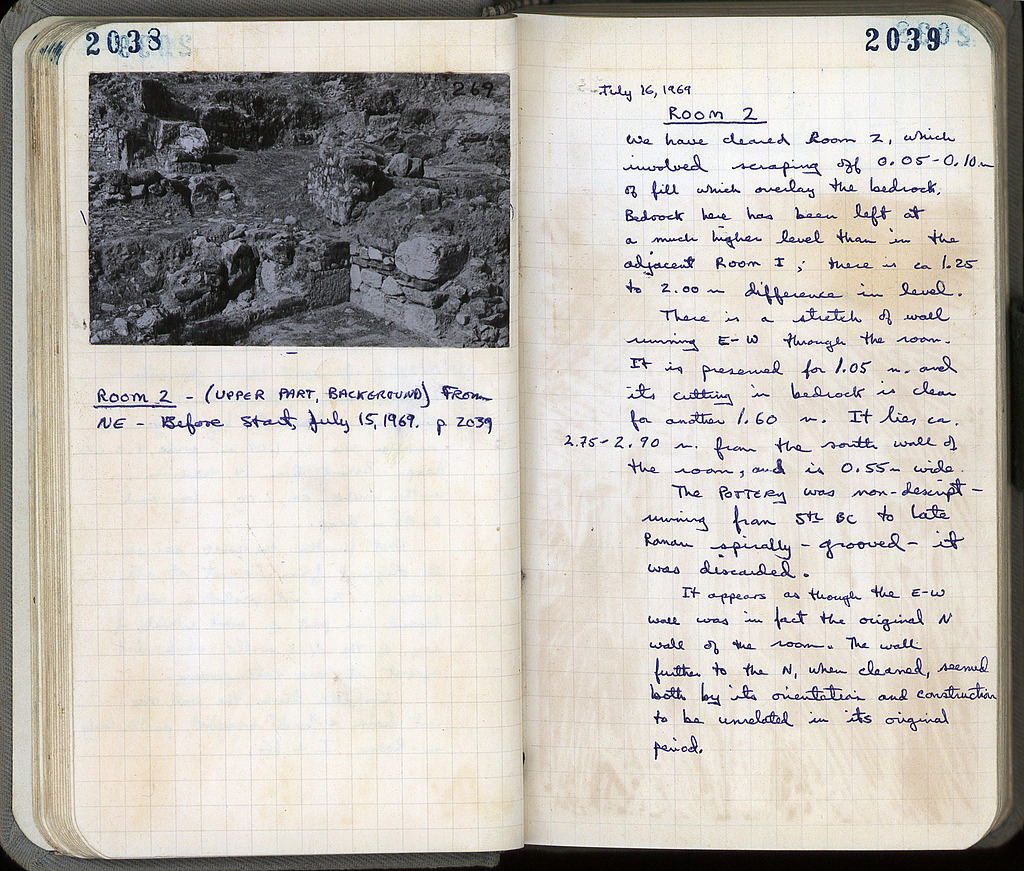 2038
269
ROOM 2 - (UPPER PART, BACKGROUND) From
NE - Before Start, July 15, 1969. p 2039
2039
July 16, 1969
ROOM 2
We have cleared Room 2, which
involved scraping off 0.05-0.10 m
of fill which overlay the bedrock.
Bedrock here has been left at
a much higher level than in the
adjacent Room I; there is ca 1.25
to 2.00 m difference in level.
There is a stretch of wall
running E-W through the room.
It is preserved for 1.05 m. and
its cutting in bedrock is clear
for another 1.60 m. It lies ca.
2.75-2.90 m. from the south wall of
the room, and is 0.55 m wide.
The POTTERY was non-descript -
running from 5th BC to Late
Roman spirally - grooved - it
was discarded.
It appears as though the E-W
wall was in fact the original N
wall of the room. The wall
further to the N, when cleaned, seemed
both by its orientation and construction
to be unrelated in its original
period.